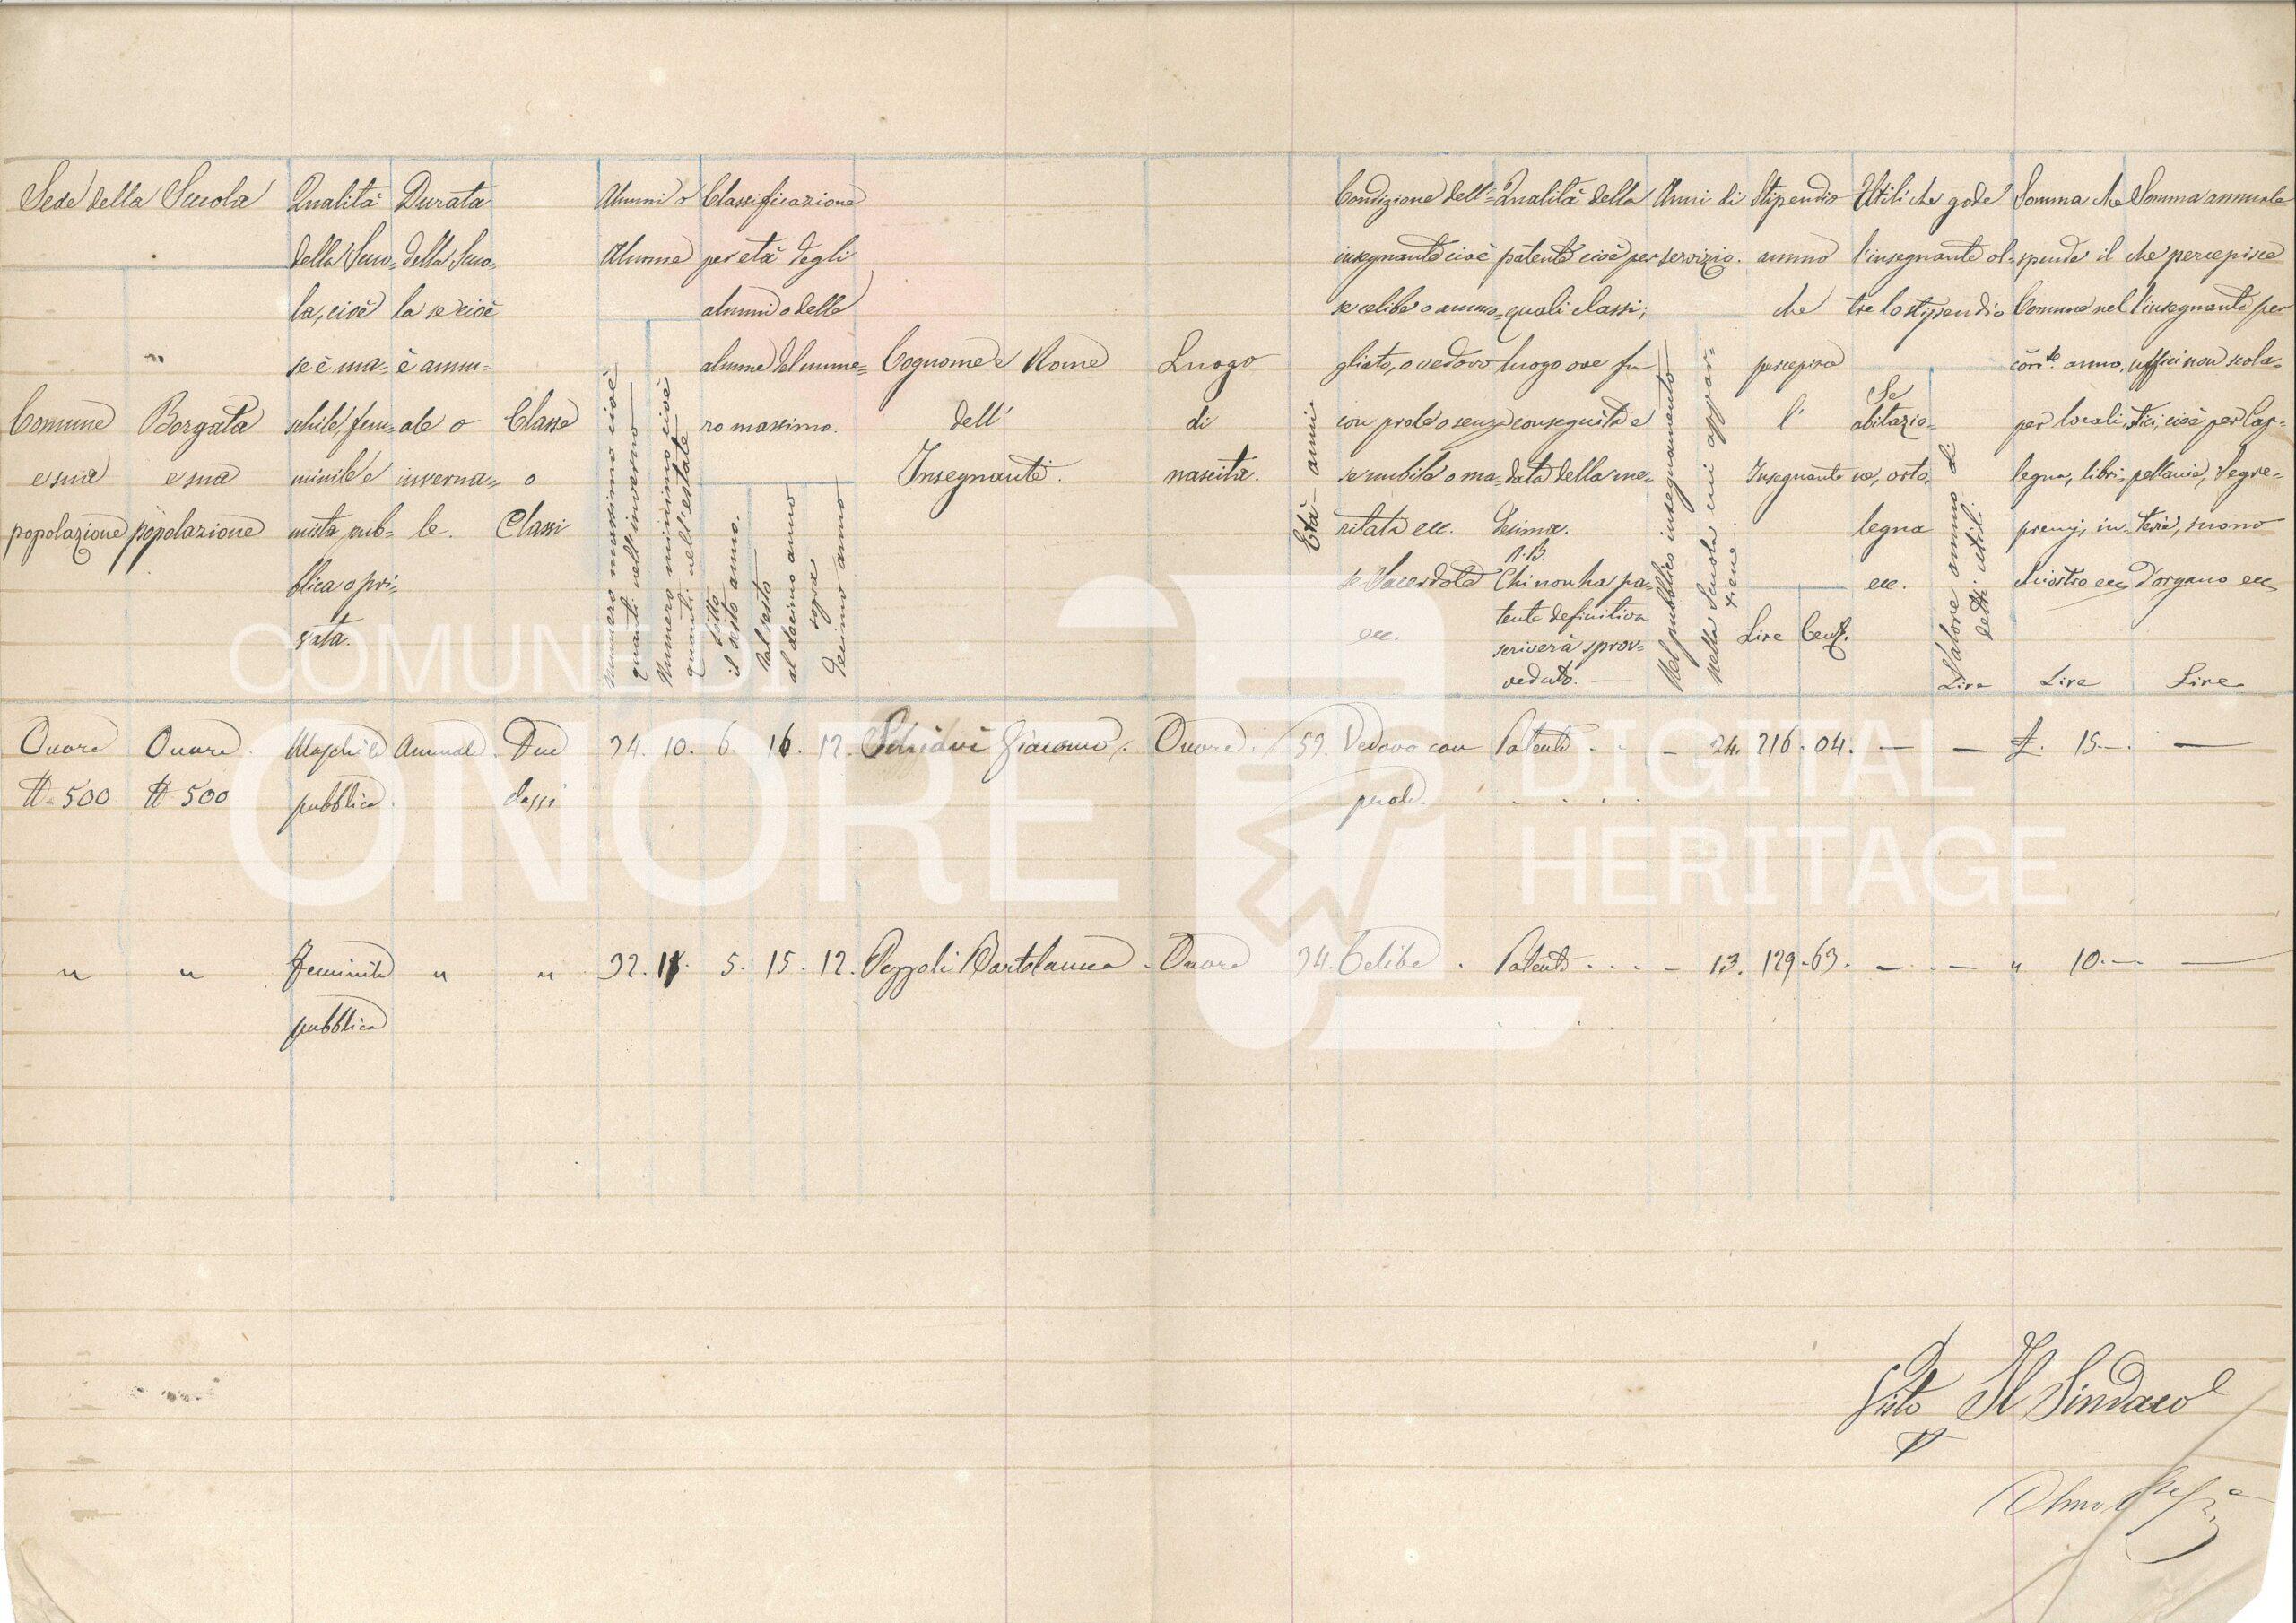 Sede della Scuola
Comune e sua popolazione
Borgata e sua popolazione
Qualità della Scuo=la, cioè se è ma=schile, fem=minile e mista pub=blica o pri=vata.
Durata della Scuo=la se cioè è annu=ale o inverna=le.
Classe o Classi
Alunni o Alunne
Numero massimo cioè quanti nell'inverno
Numero minimo cioè quanti nell'estate
Classificazione per età degli alunni o delle alunne del nume=ro massimo.
sotto il sesto anno.
dal sesto al decimo anno
sopra decimo anno
Cognome e Nome dell' Insegnante.
Luogo di nascita.
Età anni
Condizione dell'=insegnante cioè se celibe o ammo=gliato, o vedovo con prole o senza se nubile o ma=ritata ecc. se Sacerdote ecc.
Qualità della patente cioè per quali classi; luogo ove fu conseguita e data della me=desima.
N.B.
Chi non ha pa=tente definitiva scriverà sprov=veduto.
Anni di servizio.
Nel pubblico insegnamento
Nella Scuola cui appar=tiene.
Stipendio annuo che percepisce l' Insegnante
Lire Cent.
Utili che gode l'insegnante ol=tre lo stipendio
Se abitazio=ne, orto, legna ecc.
Valore annuo di detti utili
Lire
Somma che spende il Comune nel corr.te anno, per locali, legna, libri, premj, in=chiostro ecc
Lire
Somma annuale che percepisce l'insegnante per uffici non scola=stici, cioè per Cap=pellania, Segre=teria, suono d'organo ecc
Lire
Onore Onore. Maschile Annuale. Due 24. 10. 6. 16. 12. Schiavi Giacomo. Onore. 59. Vedovo con Patente . . - 24. 216. 04. — — £. 15—. —
tt. 500 tt 500 pubblica. classi prole.
" " Feminile " " 32. 11. 5. 15. 12. Pezzoli Bartolamea. Onore 34. Celibe . Patente . . . - 13. 129.63. — . — " 10.— —
pubblica
COMUNE DI
ONORE
DIGITAL
HERITAGE
Visto Il Sindaco